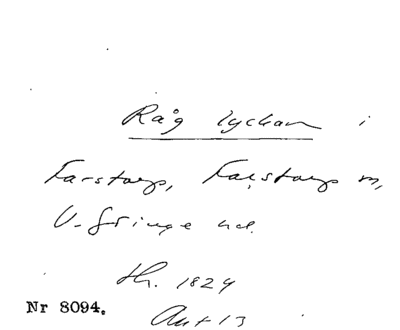 Råg lyckan i
Farstorp, Farstorp sn,
V. Göinge hd.
th. 1824
Akt 13
Nr 8094.